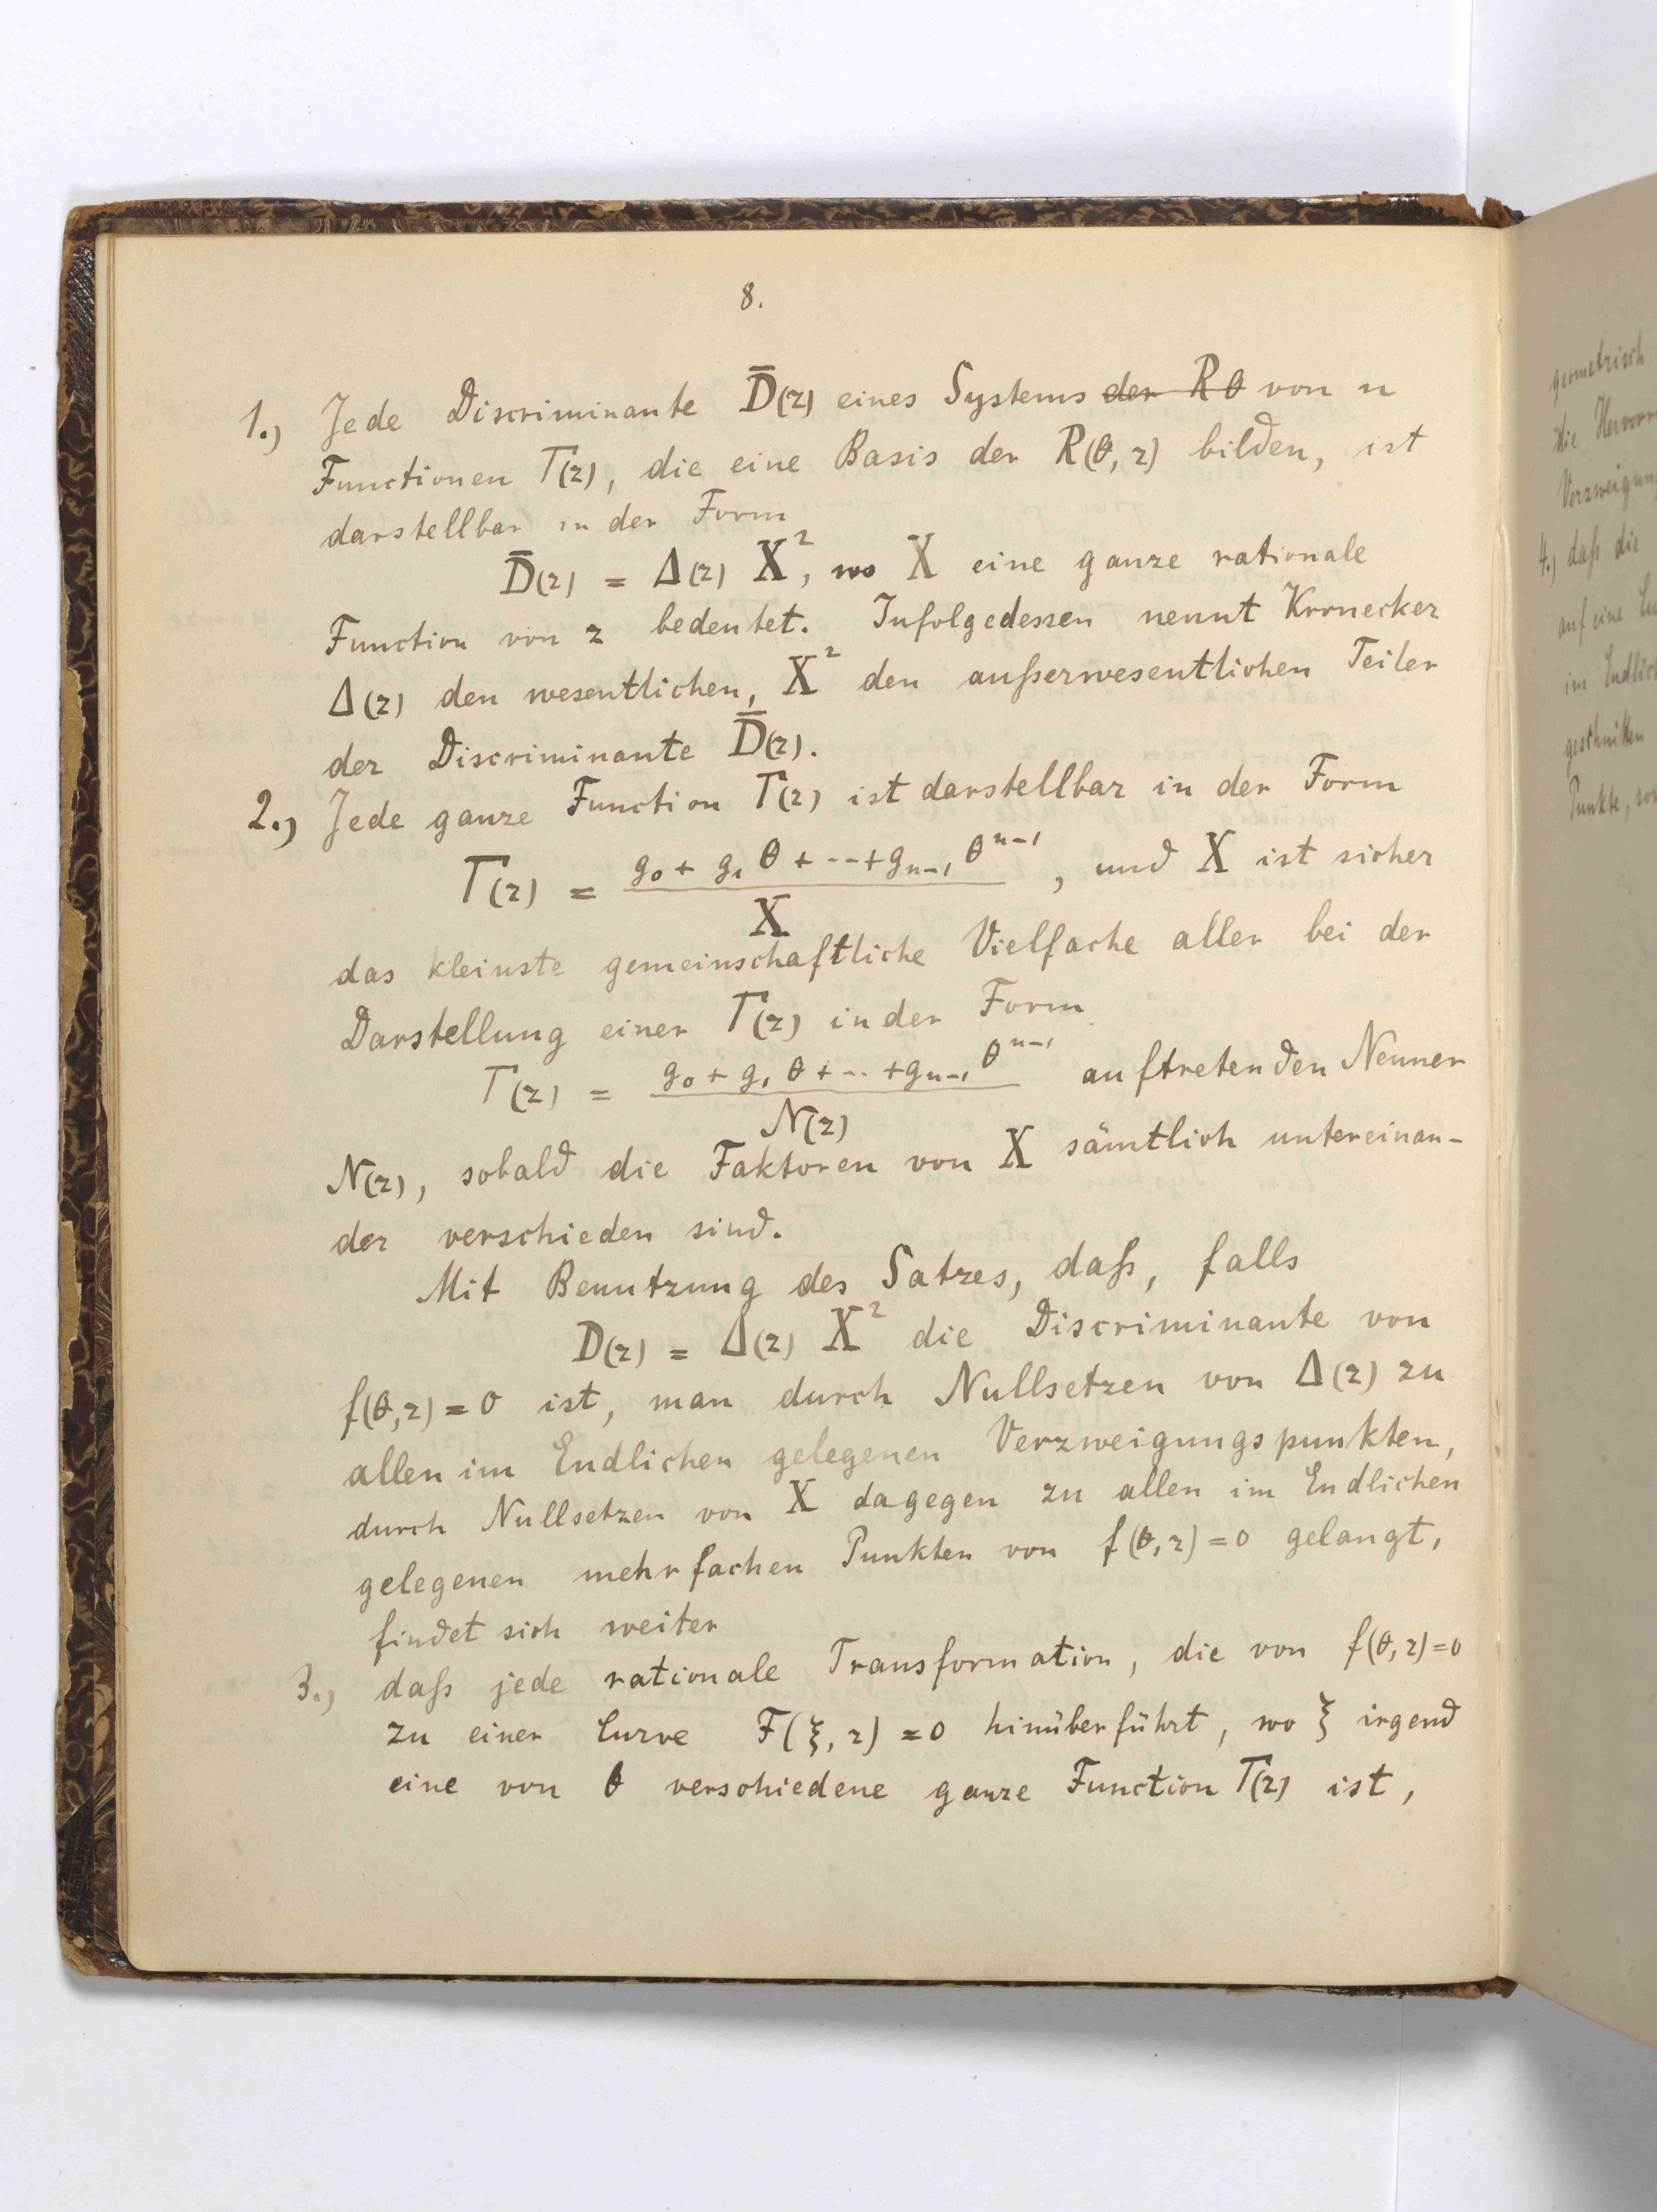 8.
1.) Jede Discriminante D̄(z) eines Systems ~~der Rθ~~ von n
Functionen T(z), die eine Basis der R(θ, z) bilden, ist
darstellbar in der Form
D̄(z) = Δ(z) X², wo X eine ganze rationale
Function von z bedeutet. Infolgedessen nennt Kronecker
Δ(z) den wesentlichen, X² den außerwesentlichen Teiler
der Discriminante D̄(z).
2.) Jede ganze Function T(z) ist darstellbar in der Form
T(z) = (g₀ + g₁ θ + ... + gₙ₋₁ θⁿ⁻¹) / X , und X ist sicher
das kleinste gemeinschaftliche Vielfache aller bei der
Darstellung einer T(z) in der Form
T(z) = (g₀ + g₁ θ + ... + gₙ₋₁ θⁿ⁻¹) / N(z) auftretenden Nenner
N(z), sobald die Faktoren von X sämtlich untereinan-
der verschieden sind.
Mit Benutzung des Satzes, daß, falls
D(z) = Δ(z) X² die Discriminante von
f(θ, z) = 0 ist, man durch Nullsetzen von Δ(z) zu
allen im Endlichen gelegenen Verzweigungspunkten,
durch Nullsetzen von X dagegen zu allen im Endlichen
gelegenen mehrfachen Punkten von f(θ, z) = 0 gelangt,
findet sich weiter
3.) daß jede rationale Transformation, die von f(θ, z) = 0
zu einer Curve F(ξ, z) = 0 hinüberführt, wo ξ irgend
eine von θ verschiedene ganze Function T(z) ist,
geometrisch
die
4.) daß die
auf eine
im
geschnitten
Punkte,